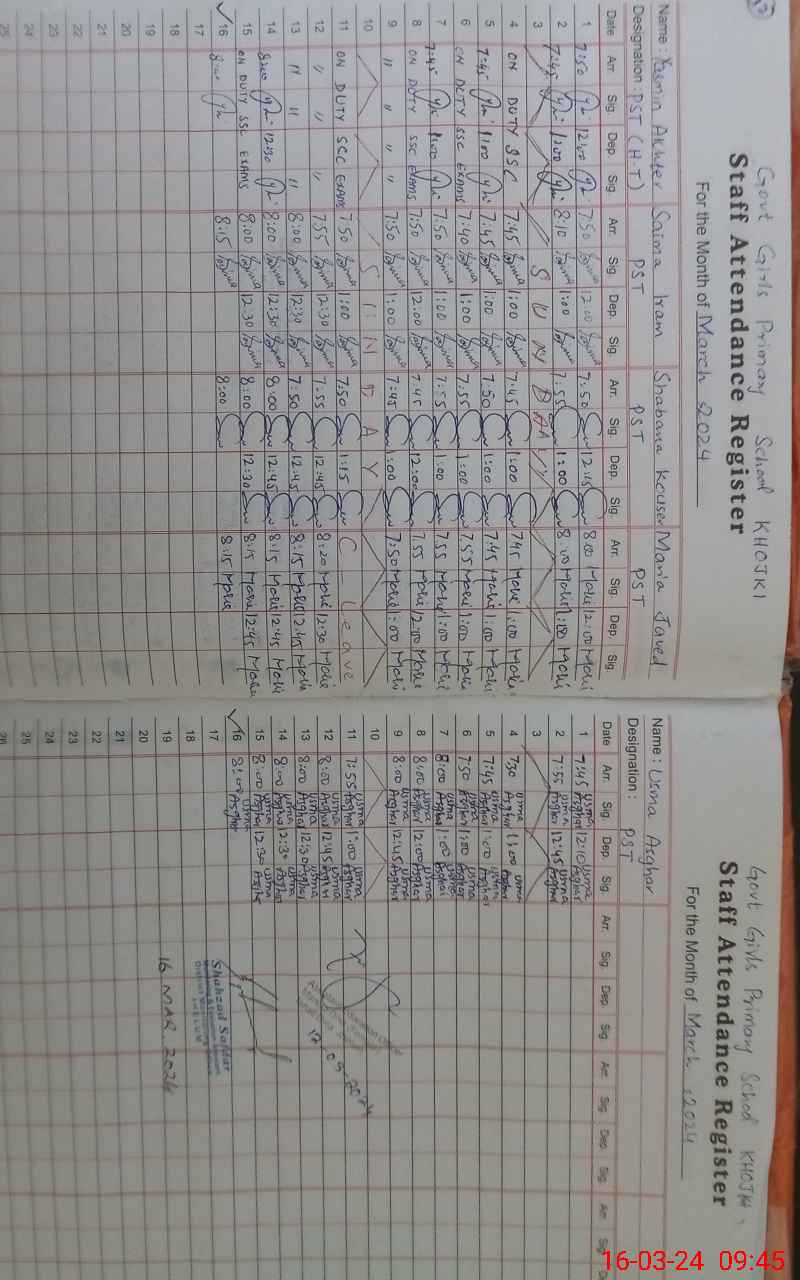 Govt Girls Primary School KHOJKI
Staff Attendance Register
For the Month of March 2024
Name : Yasmin Akhter Saima Iram Shabana Kouser Maria Javed
Designation : PST (H.T) PST PST PST
Date Arr. Sig. Dep. Sig. Arr. Sig. Dep. Sig. Arr. Sig. Dep. Sig. Arr. Sig. Dep. Sig.
1 7:50 12:00 7:50 Saima 12:00 Saima 7:50 12:15 8:00 12:00
2 7:45 1:00 8:10 Saima 1:00 Saima 7:55 1:00 8:00 1:00
3 S U N D A Y
4 ON DUTY SSC 7:45 Saima 1:00 Saima 7:45 1:00 7:45 1:00
5 7:45 1:00 7:45 Saima 1:00 Saima 7:50 1:00 7:45 1:00
6 ON DUTY SSC EXAMS 7:40 Saima 1:00 Saima 7:55 1:00 7:55 1:00
7 7:45 1:00 7:50 Saima 1:00 Saima 7:55 1:00 7:55 1:00
8 ON DUTY SSC EXAMS 7:50 Saima 12:00 Saima 7:45 12:00 7:55 12:00
9 " " " " 7:50 Saima 1:00 Saima 7:45 1:00 7:50 1:00
10 S U N D A Y
11 ON DUTY SCC EXAMS 7:50 Saima 1:00 Saima 7:50 1:15 C — Leave
12 " " " 7:55 Saima 12:30 Saima 7:55 12:45 8:20 12:30
13 " " " 8:00 Saima 12:30 Saima 7:50 12:45 8:15 12:45
14 8:00 12:30 8:00 Saima 12:30 Saima 8:00 12:45 8:15 12:45
15 ON DUTY SSC EXAMS 8:00 Saima 12:30 Saima 8:00 12:30 8:15 12:45
16 8:00 8:15 Saima 8:00 8:15
17
18
19
20
21
22
23
24
25
Govt Girls Primary School KHOJKI
Staff Attendance Register
For the Month of March, 2024
Name : Usma Asghar
Designation : PST
Date Arr. Sig. Dep. Sig. Arr. Sig. Dep. Sig. Arr. Sig. Dep. Sig. Arr. Sig. D
1 7:45 Usma Asghar 12:10 Usma Asghar
2 7:55 Usma Asghar 12:45 Usma Asghar
3
4 7:30 Usma Asghar 1:00 Usma Asghar
5 7:45 Usma Asghar 1:00 Usma Asghar
6 7:50 Usma Asghar 1:00 Usma Asghar
7 8:00 Usma Asghar 1:00 Usma Asghar
8 8:00 Usma Asghar 12:00 Usma Asghar
9 8:00 Usma Asghar 12:45 Usma Asghar
10
11 7:55 Usma Asghar 1:00 Usma Asghar
12 8:00 Usma Asghar 12:45 Usma Asghar
13 8:00 Usma Asghar 12:30 Usma Asghar
14 8:00 Usma Asghar 2:30 Usma Asghar
15 8:00 Usma Asghar 12:30 Usma Asghar
16 8:00 Usma Asghar
17
18
19
20
21
22
23
24
25
26
Shahzad Safdar
JHELUM
16 MAR 2024
16-03-24 09:45